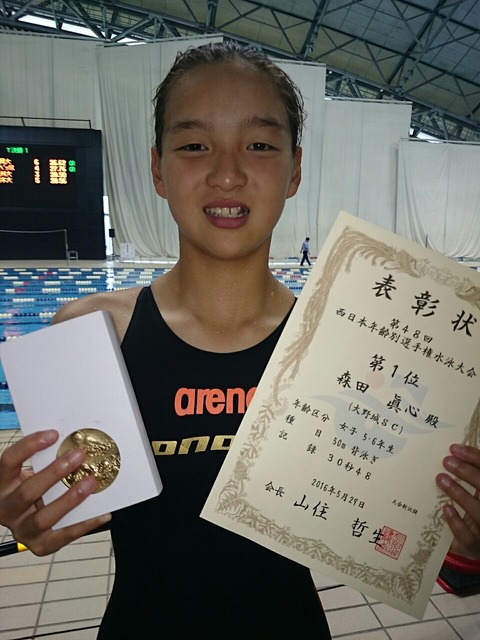 表彰状
第48回
西日本年齢別選手権水泳大会
第1位
森田 眞心 殿
(大野城SC)
年齢区分 女子 5・6年生
種目 50m 背泳ぎ
記録 30秒48
2016年5月29日 大会新記録
会長 山住 哲生
arena